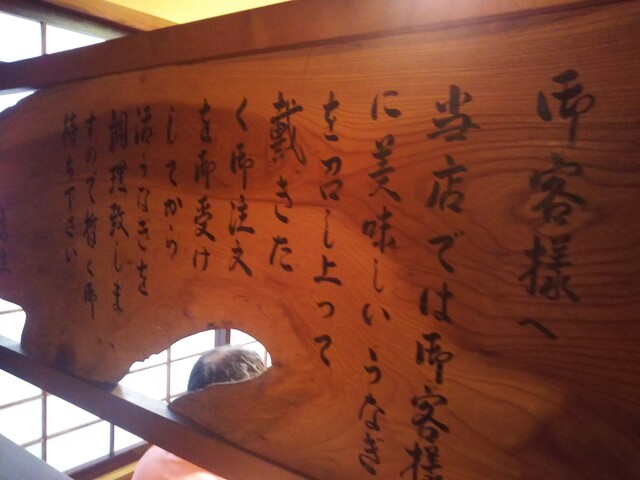 御客様へ
当店では御客様
に美味しいうなぎ
を召し上って
戴きた
く御注文
を御受け
してから
活うなぎを
調理致しま
すので暫く御
待ち下さい